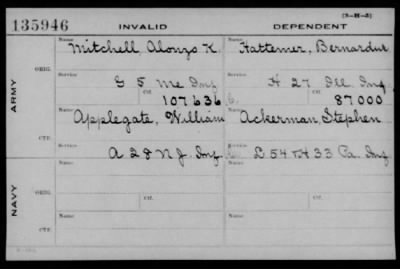 (3-H-5)
135946 INVALID DEPENDENT
Name Name
Mitchell, Alonzo K. Hattemer, Bernardine
ORIG. Service Service
G 5 Me Inf H 27 Ill Inf
Ctf. 107636 Ctf. 87000
ARMY
Name Name
Applegate, William Ackerman, Stephen
CTF. Service Service
A 28 N J. Inf L 54 & H 33 Ca. Inf
Name Name
ORIG.
Service Ctf. Service Ctf.
NAVY
Name Name
CTF.
Service Service